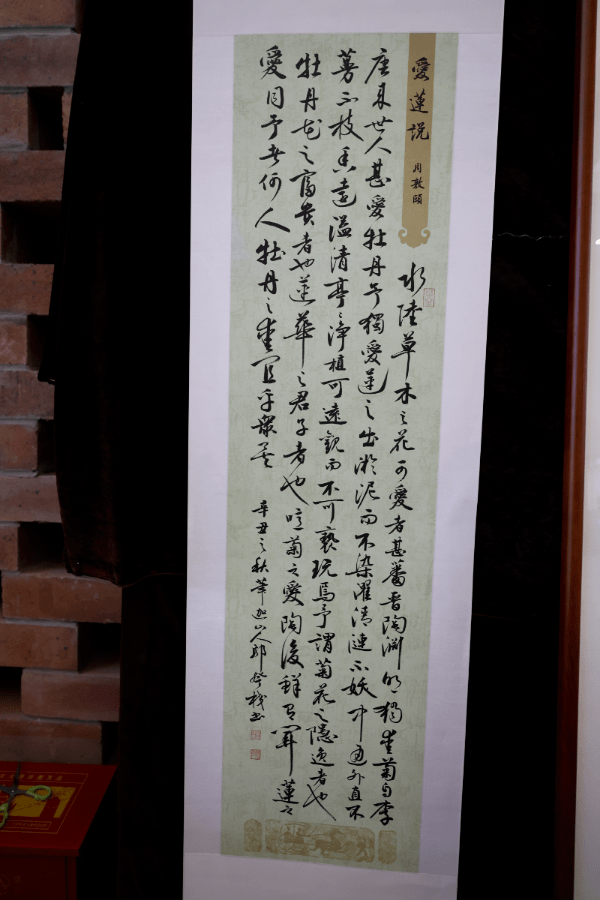 愛蓮說
周敦頤
水陸草木之花可愛者甚蕃晉陶淵明獨愛菊自李
唐來世人甚愛牡丹予獨愛蓮之出淤泥而不染濯清漣而不妖中通外直不
蔓不枝香遠溢清亭亭淨植可遠觀而不可褻玩焉予謂菊花之隱逸者也
牡丹花之富貴者也蓮華之君子者也噫菊之愛陶後鮮有聞蓮之
愛同予者何人牡丹之愛宜乎眾矣
辛丑之秋華山人書